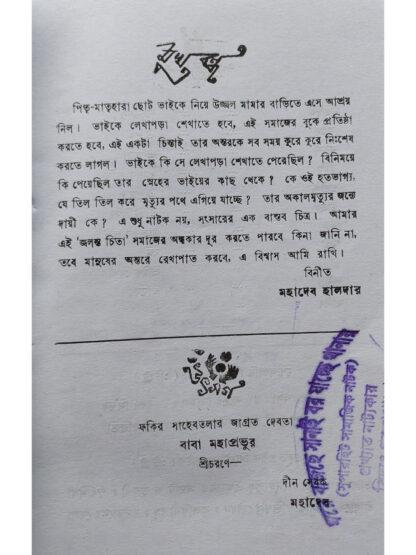 মুখবন্ধ
পিতৃ-মাতৃহারা ছোট ভাইকে নিয়ে উজ্জল মামার বাড়িতে এসে আশ্রয়
নিল। ভাইকে লেখাপড়া শেখাতে হবে, এই সমাজের বুকে প্রতিষ্ঠা
করতে হবে, এই একটা চিন্তাই তার অন্তরকে সব সময় কুরে কুরে নিঃশেষ
করতে লাগল। ভাইকে কি সে লেখাপড়া শেখাতে পেরেছিল? বিনিময়ে
কি পেয়েছিল তার স্নেহের ভাইয়ের কাছ থেকে? কে ওই হতভাগ্য,
যে তিল তিল করে মৃত্যুর পথে এগিয়ে যাচ্ছে? তার অকালমৃত্যুর জন্যে
দায়ী কে? এ শুধু নাটক নয়, সংসারের এক বাস্তব চিত্র। আমার
এই 'জলন্ত চিতা' সমাজের অন্ধকার দূর করতে পারবে কিনা জানি না,
তবে মানুষের অন্তরে রেখাপাত করবে, এ বিশ্বাস আমি রাখি।
বিনীত
মহাদেব হালদার
উৎসর্গ
ফকির সাহেবতলার জাগ্রত দেবতা
বাবা মহাপ্রভুর
শ্রীচরণে—
দীন সেবক
মহাদেব
সানাই বর যাচ্ছে থানায়
(সুপারহিট সামাজিক নাটক)
প্রখ্যাত নাট্যকার